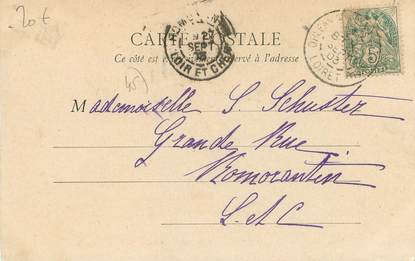 20€
CARTE POSTALE
Ce côté est exclusivement réservé à l'adresse
SEPT
LOIR ET CHER
LOIRET
5
45)
Mademoiselle S. Schuster
Grande Rue
Romorantin
L. A C